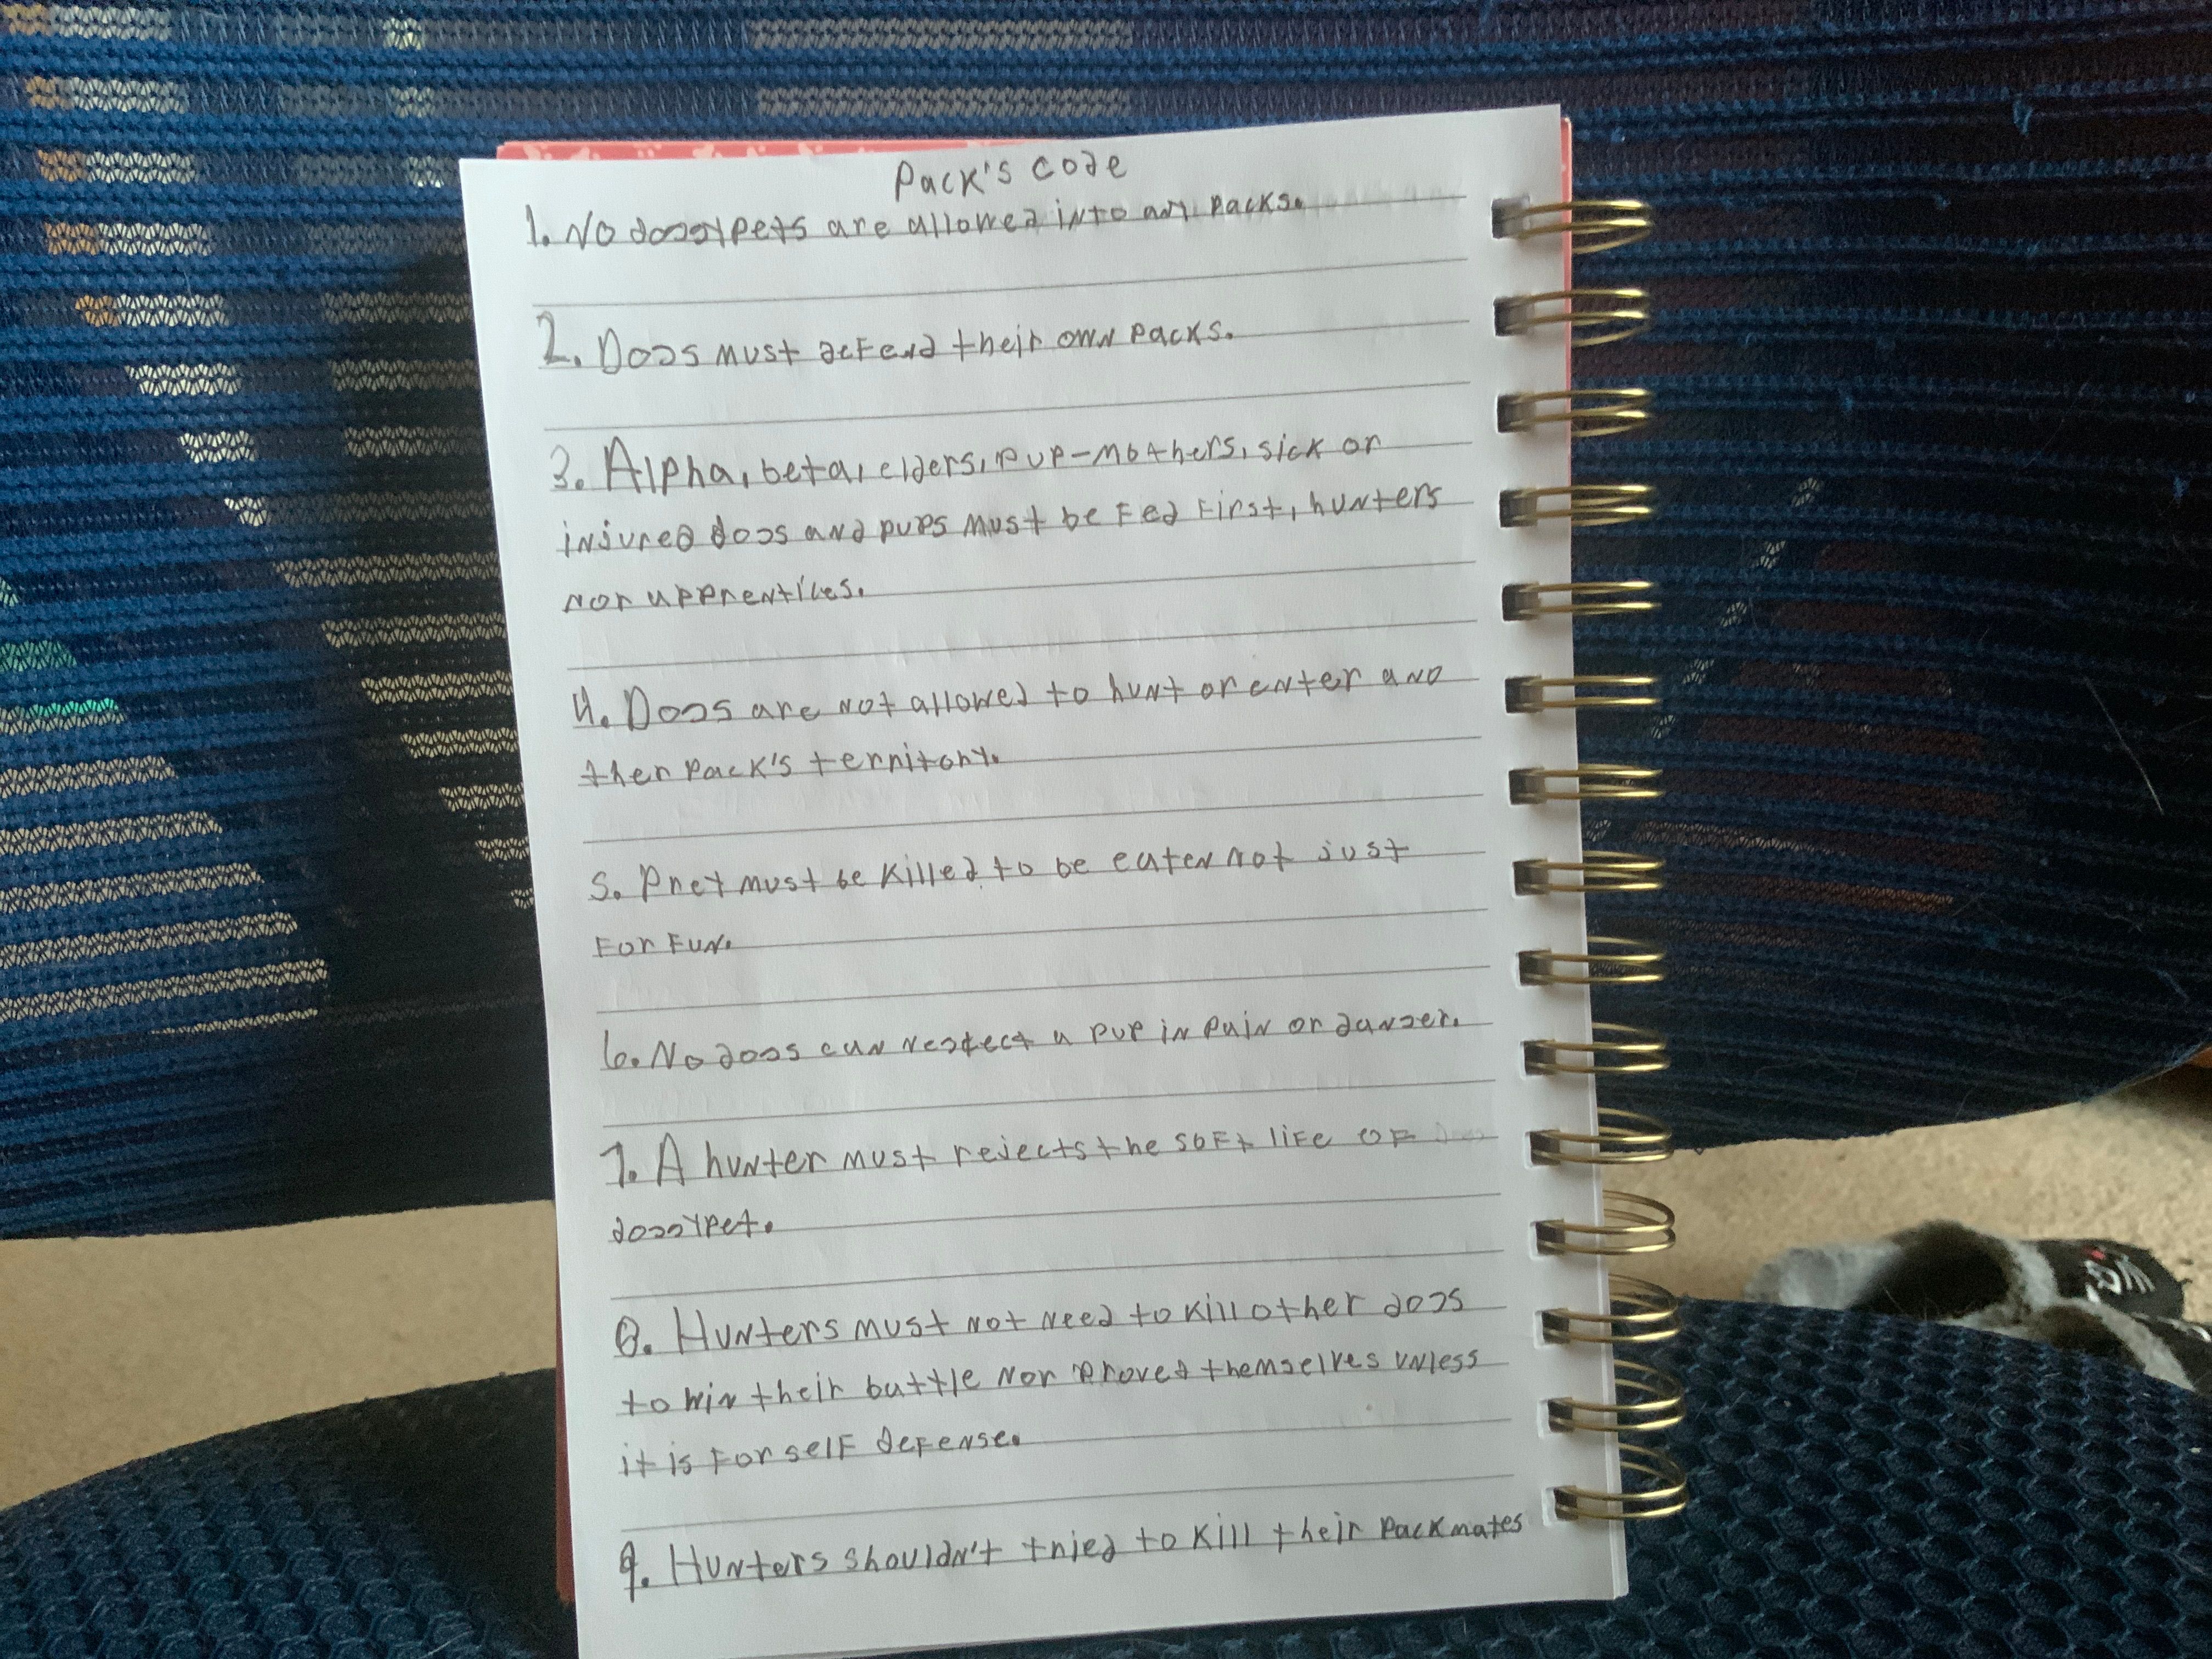 Pack's code
1. No doggypets are allowed into any packs.
2. Dogs must defend their own packs.
3. Alpha, beta, elders, pup-mothers, sick or
injured dogs and pups must be fed first, hunters
nor apprentices.
4. Dogs are not allowed to hunt or enter ano
ther pack's territory.
5. Prey must be killed to be eaten not just
for fun.
6. No dogs can neglect a pup in pain or danger.
7. A hunter must rejects the soft life of
doggypet.
8. Hunters must not need to kill other dogs
to win their battle nor proved themselves unless
it is for self defense.
9. Hunters shouldn't tried to kill their packmates